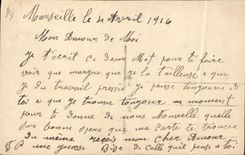 Marseille le 4 Avril 1916
Mon Amour de Moi
Je t'ecrit ce deux Mot pour te faire
voir que marque que Je la tailleuse e que
Je du travail pressé Je pense toujours
toi e que Je trouve toujour un moment
pour te donne de nous Nouvelle quelle
Son bonne que ma Carte te trouve
de même recois mon cher Amour
une grosse Bise de Celle qui pense a toi